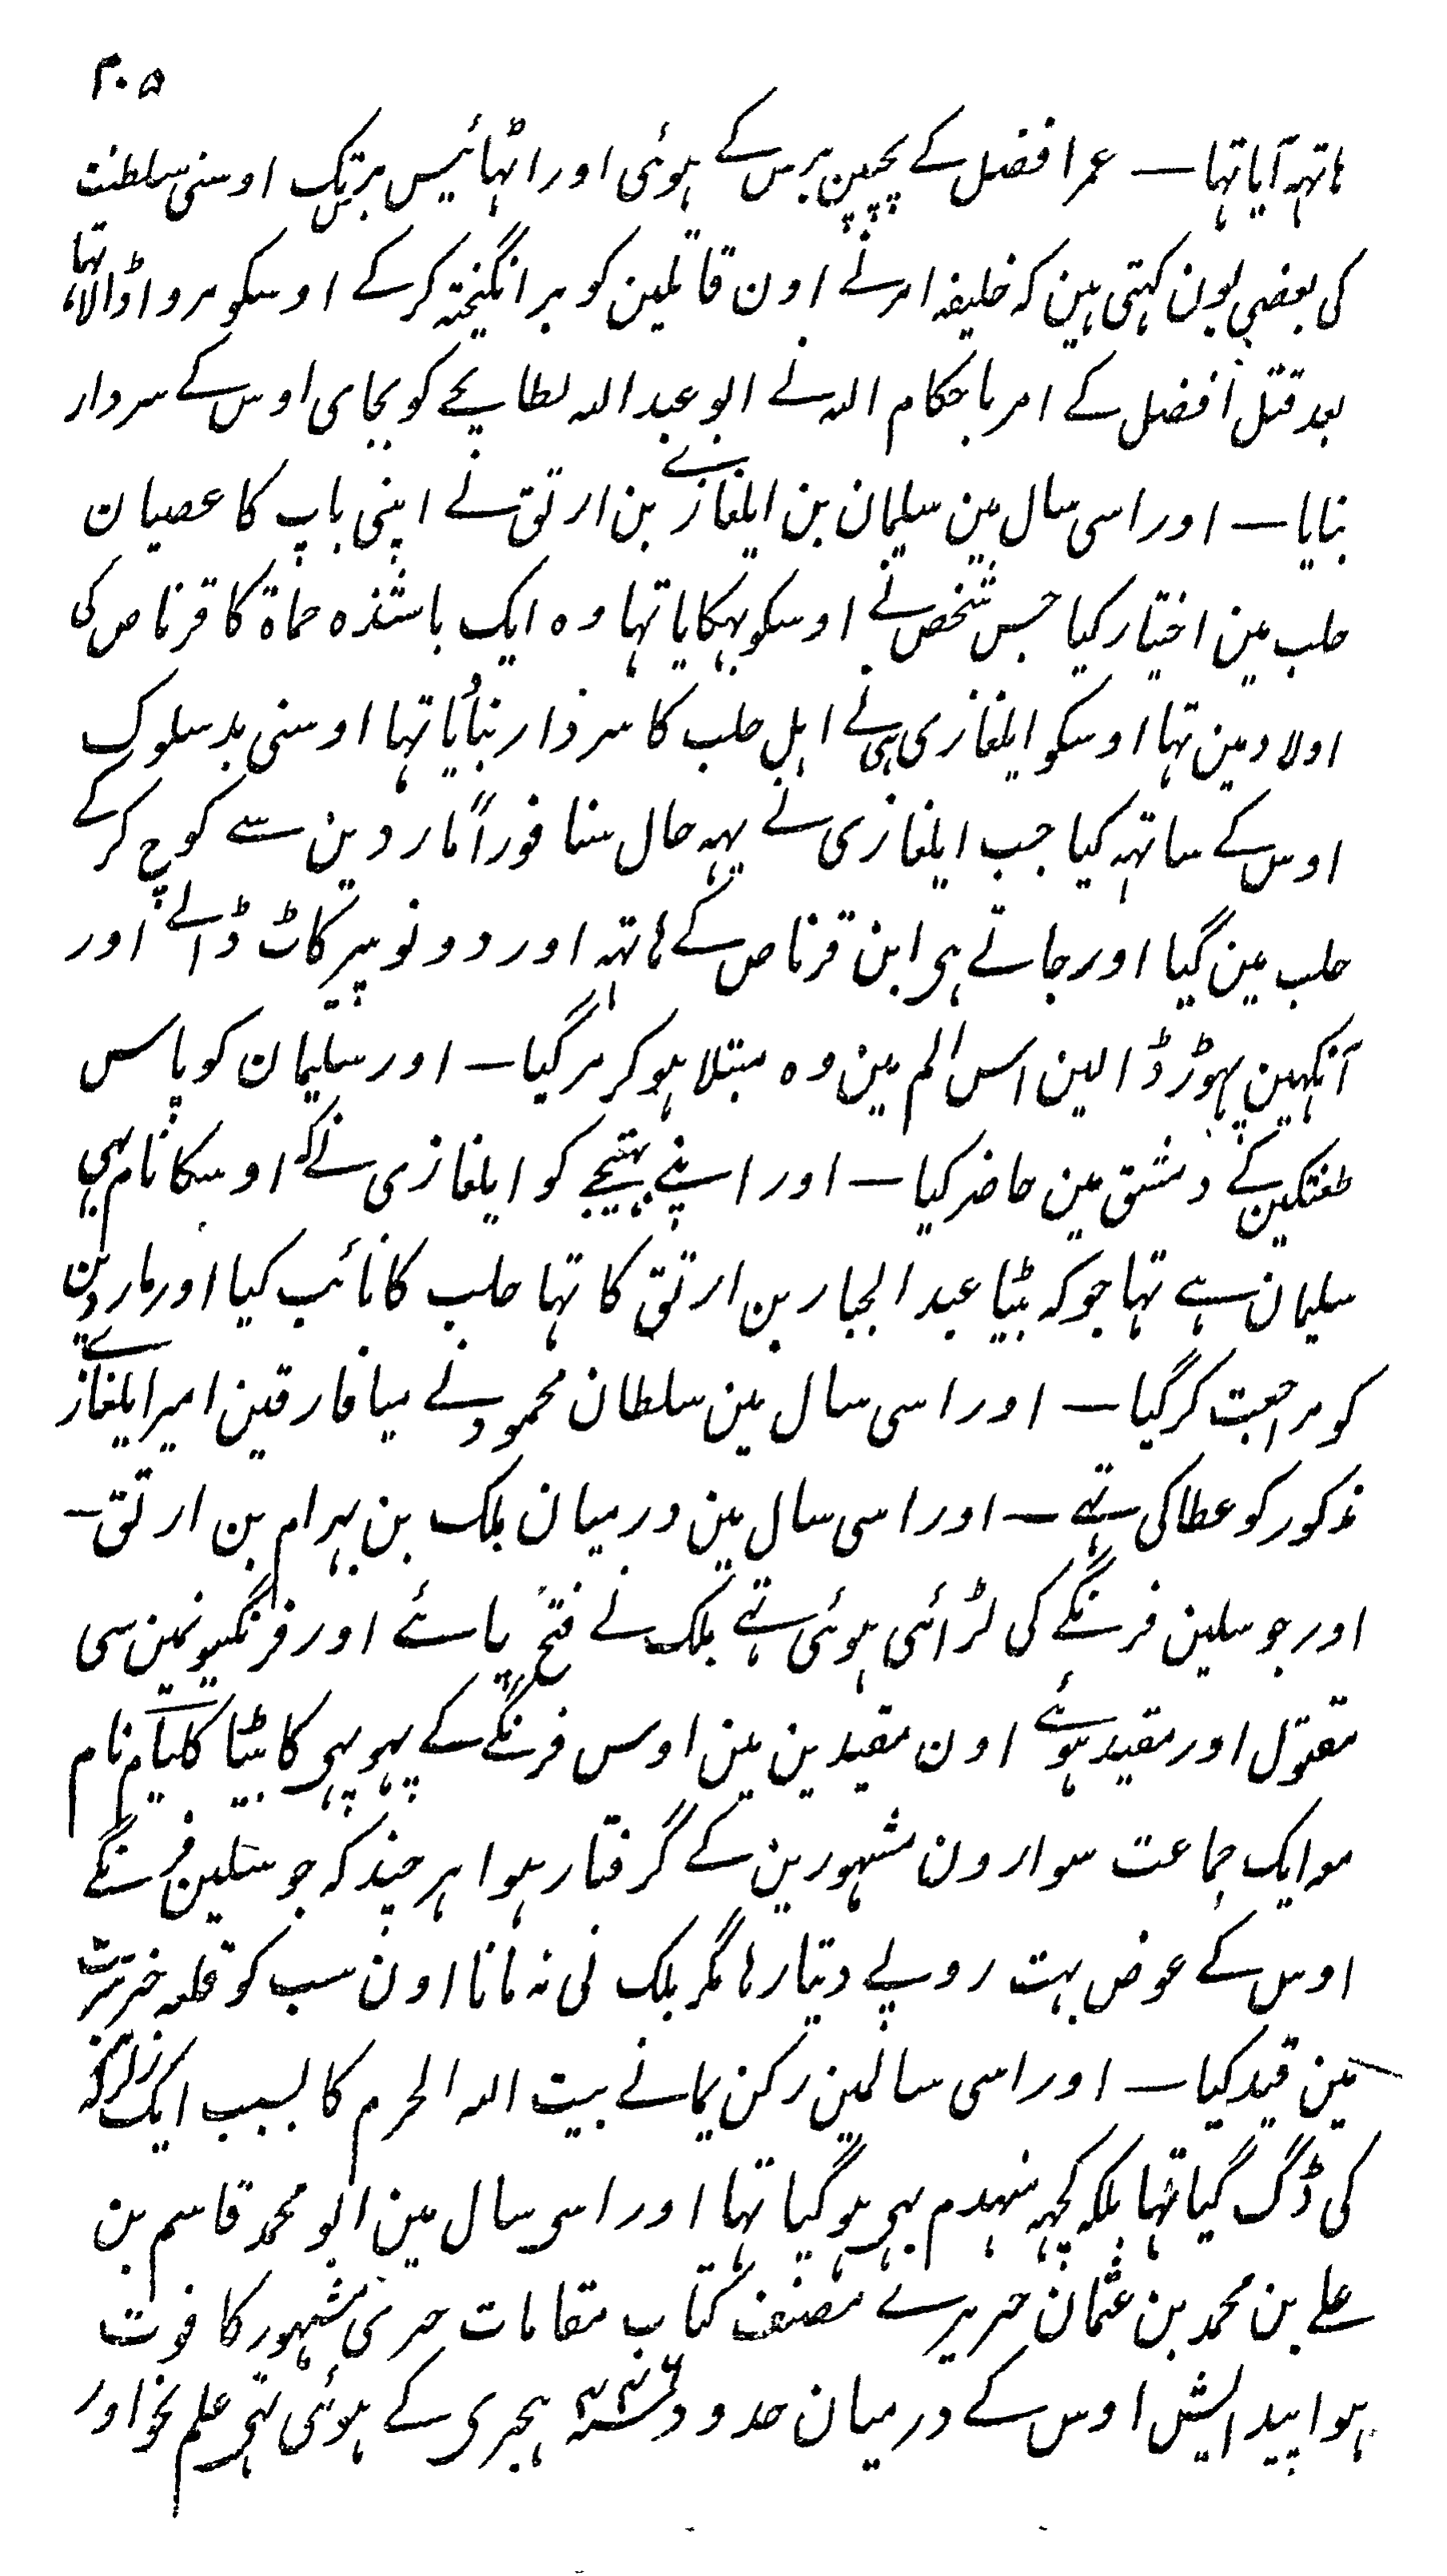 ۴۰۵
ہاتہہ آیا تہا — عمر افضل کے پچپن برس کے ہوئی اور اٹہائیس برس تک اوسنی سلطنت
کی بعضی یون کہتی ہین کہ خلیفہ امر نے اون قاتلین کو برانگیختہ کرکے اوسکو مروا ڈالا تہا
بعد قتل افضل کے امر باحکام اللہ نے ابو عبد اللہ لطایحے کو بجای اوس کے سردار
بنایا — اور اسی سال مین سلیمان بن ایلغازے بن ارتق نے اپنی باپ کا عصیان
حلب مین اختیار کیا جس شخص نے اوسکو بہکایا تہا وہ ایک باشندہ حماۃ کا قرناص کی
اولاد مین تہا اوسکو ایلغازی ہی نے اہل حلب کا سردار بنایا تہا اوسنی بد سلوک
اوس کے ساتہہ کیا جب ایلغازی نے یہہ حال سنا فوراً ماردین سے کوچ کرکے
حلب مین گیا اور جاتے ہی ابن قرناص کے ہاتہہ اور دونو پیر کاٹ ڈالے اور
آنکہین پہوڑ ڈالین اس الم مین وہ مبتلا ہوکر مرگیا — اور سلیمان کو پاس
طغتکین کے دمشق مین حاضر کیا — اور اپنے بہتیجے کو ایلغازی نے کہ اوسکا نام بہی
سلیمان ہے تہا جو کہ بیٹا عبد الجبار بن ارتق کا تہا حلب کا نائب کیا اور ماردین
کو مراجعت کرگیا — اور اسی سال مین سلطان محمود نے میافارقین امیر ایلغازے
مذکور کو عطا کی تہے — اور اسی سال مین درمیان بلک بن بہرام بن ارتق —
اور جوسلین فرنگے کی لڑائی ہوئی تہے بلک نے فتح پائے اور فرنگیونمین سی
مقتول اور مقید ہوئے اون مقیدین مین اوس فرنگے کے پہوپہی کا بیٹا کلیام نام
مہ ایک جماعت سوارون مشہورین کے گرفتار ہوا ہر چند کہ جوسلین فرنگے
اوس کے عوض بہت روپے دیتا رہا مگر بلک نی نہ مانا اون سب کو قلعہ خرتبرت
مین قید کیا — اور اسی سالمین رکن یمانے بیت اللہ الحرم کا بسبب ایک زلزلہ
کی ڈگ گیا تہا بلکہ کچہہ منہدم بہی ہوگیا تہا اور اسی سال مین ابو محمد قاسم بن
علے بن محمد بن عثمان حریرے مصنف کتاب مقامات حرری مشہور کا فوت
ہوا پیدایش اوس کے درمیان حدود ہجری کے ہوئی تہی علم نحو اور